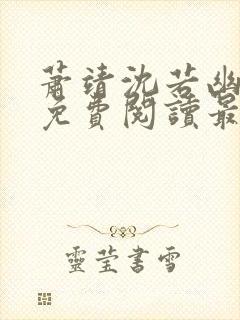 蕭靖沈若幽
免費閱讀最
靈莹書雪